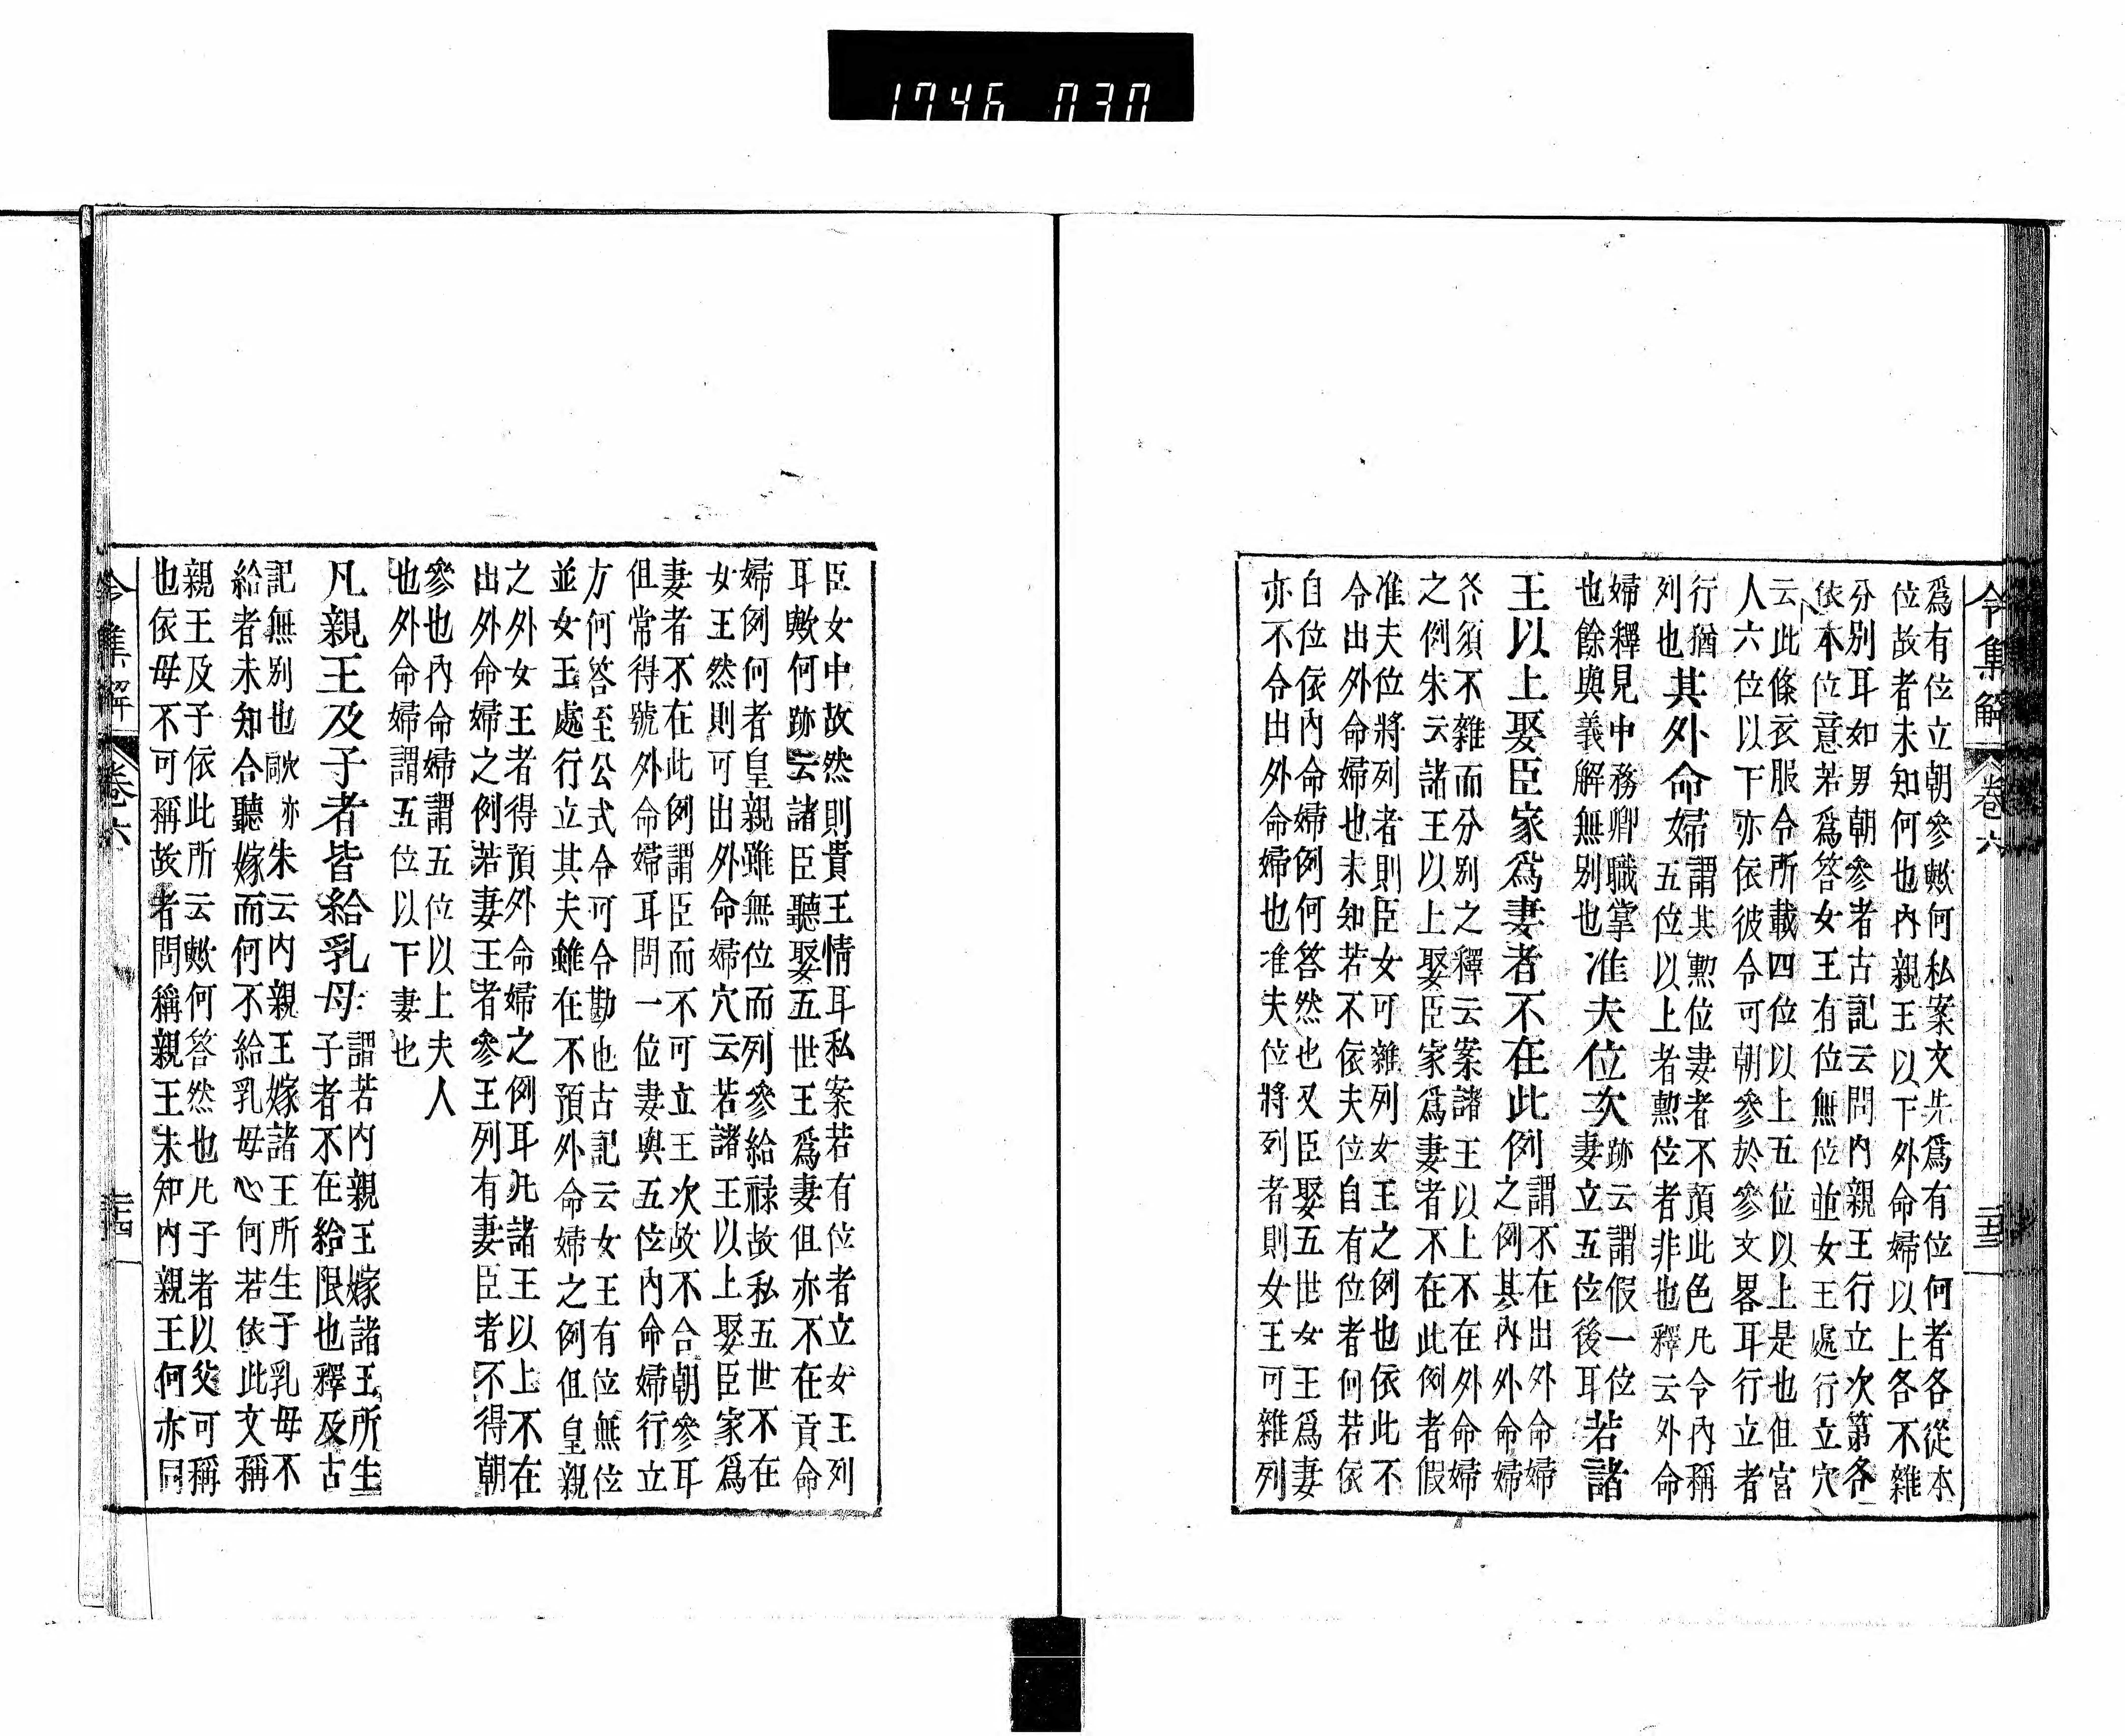 1746 030
令集解 卷六 二十三
爲有位立朝參歟何私案文先爲有位何者各從本
位故者未知何也內親王以下外命婦以上各不雜
分別耳如男朝參者古記云問內親王行立次第各
依本位意若爲答女王有位無位並女王處行立穴
云此條衣服令所載四位以上五位以上是也但宮
人六位以下亦依彼令可朝參於參文畧耳行立者
行猶
列也
其外命婦
謂其勲位妻者不預此色凡令內稱
五位以上者勲位者非也釋云外命
婦釋見中務卿職掌
也餘與義解無別也
准夫位次
跡云謂假一位
妻立五位後耳
若諸
王以上娶臣家爲妻者不在此例
謂不在出外命婦
之例其內外命婦
各須不雜而分別之釋云案諸王以上不在外命婦
之例朱云諸王以上娶臣家爲妻者不在此例者假
准夫位將列者則臣女可雜列女王之例也依此不
令出外命婦也未知若不依夫位自有位者何若依
自位依內命婦例何答然也又臣娶五世女王爲妻
亦不令出外命婦也准夫位將列者則女王可雜列
臣女中故然則貴王情耳私案若有位者立女王列
耳歟何跡云諸臣聽娶五世王爲妻但亦不在貢命
婦例何者皇親雖無位而列參給祿故私五世不在
女王然則可出外命婦穴云若諸王以上娶臣家爲
妻者不在此例謂臣而不可立王次故不合朝參耳
但常得號外命婦耳問一位妻與五位內命婦行立
方何答至公式令可令勘也古記云女王有位無位
並女王處行立其夫雖在不預外命婦之例但皇親
之外女王者得預外命婦之例耳凡諸王以上不在
出外命婦之例若妻王者參王列有妻臣者不得朝
參也內命婦謂五位以上夫人
也外命婦謂五位以下妻也
凡親王及子者皆給乳母
謂若內親王嫁諸王所生
子者不在給限也釋及古
記無別也歟亦朱云內親王嫁諸王所生子乳母不
給者未知合聽嫁而何不給乳母心何若依此文稱
親王及子依此所云歟何答然也凡子者以父可稱
也依母不可稱故者問稱親王未知內親王何亦同
令集解 卷六 二十四